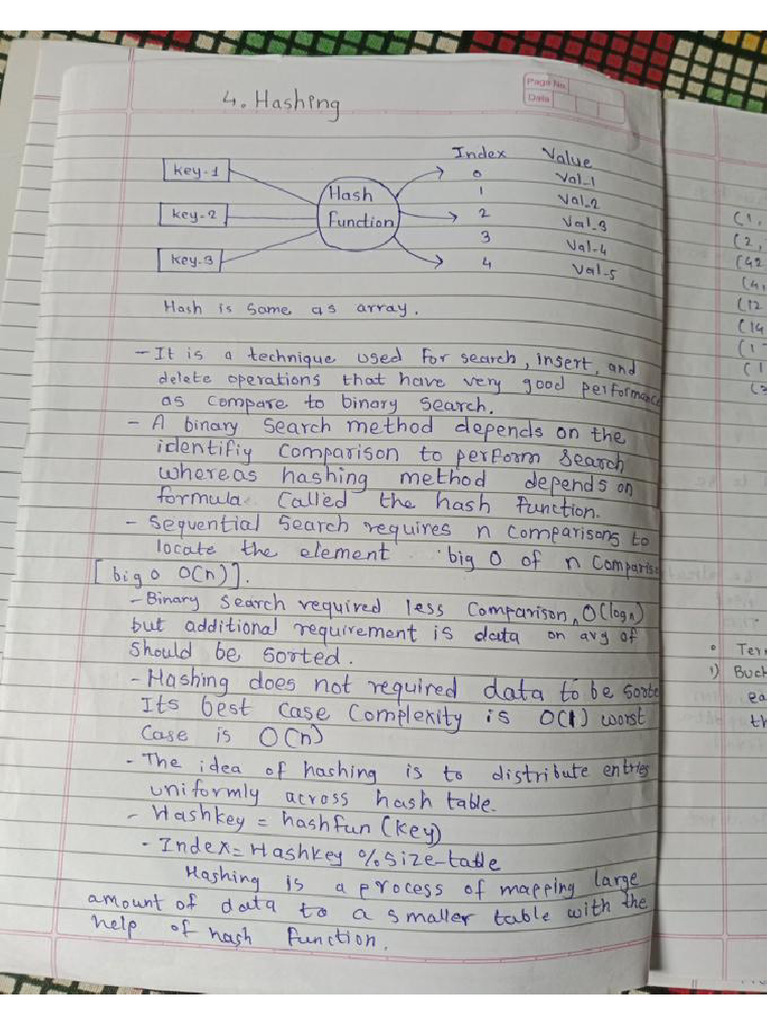 Page No
Date
4. Hashing
Index Value
key-1 0 Val-1
Hash 1 Val-2
key-2 Function 2 Val-3
3 Val-4
key-3 4 Val-5
Hash is same as array.
- It is a technique used for search, insert, and
delete operations that have very good performance
as compare to binary search.
- A binary search method depends on the
identifiy comparison to perform search
whereas hashing method depends on
formula called the hash function.
- Sequential search requires n comparisons to
locate the element big O of n comparis
[big o O(n)].
- Binary search required less comparison, O(logn)
but additional requirement is data on avg of
should be sorted.
- Hashing does not required data to be sorte
Its best case complexity is O(1) worst
case is O(n)
- The idea of hashing is to distribute entries
uniformly across hash table.
- Hashkey = hashfun (key)
- Index = Hashkey % size-table
Hashing is a process of mapping large
amount of data to a smaller table with the
help of hash function.
(1,
(2,
(42
(4,
(12
(19
(1
(1
(3
Ter
1) Buck
ea
th